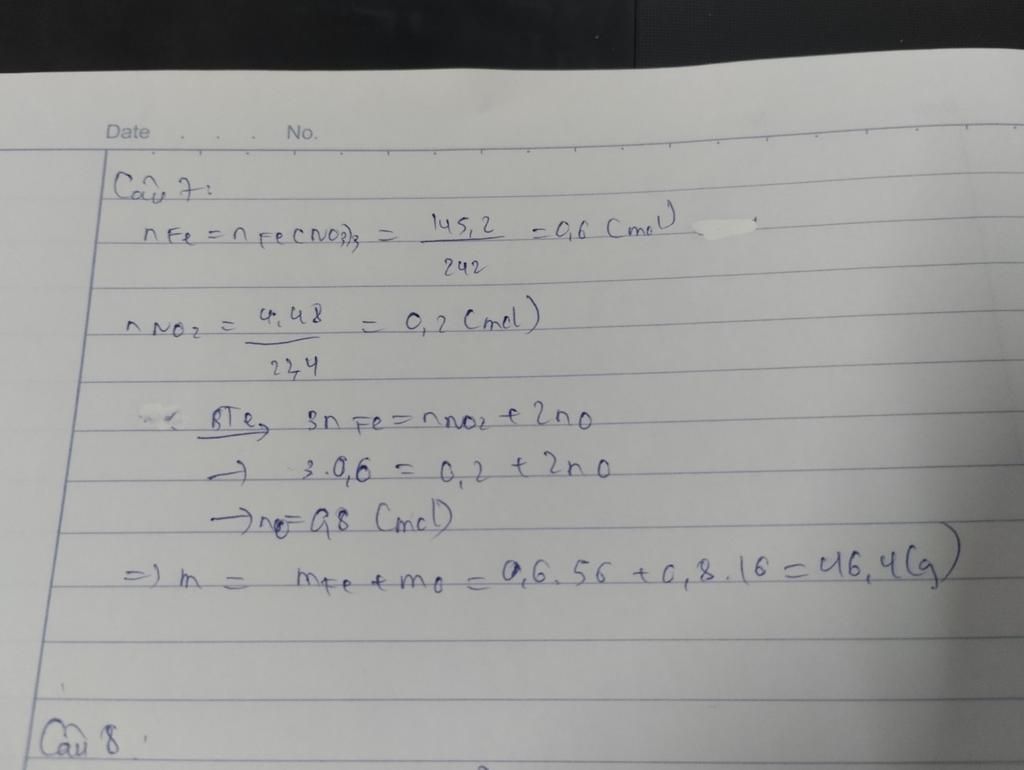 Date . . . No.
Câu 7:
nFe = nFe(NO3)3 = 145,2 / 242 = 0,6 (mol)
nNO2 = 4,48 / 22,4 = 0,2 (mol)
BTe → 3nFe = nNO2 + 2nO
→ 3.0,6 = 0,2 + 2nO
→ nO = 0,8 (mol)
=> m = mFe + mO = 0,6.56 + 0,8.16 = 46,4 (g)
Câu 8